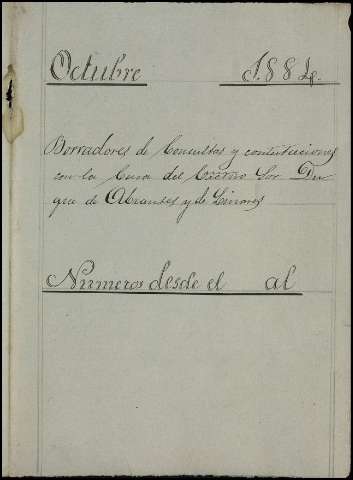 Octubre 1884.
Borradores de Consultas y contestaciones
con la Casa del Excmo Sor. Du-
que de Abrantes y de Linares
Numeros desde el al